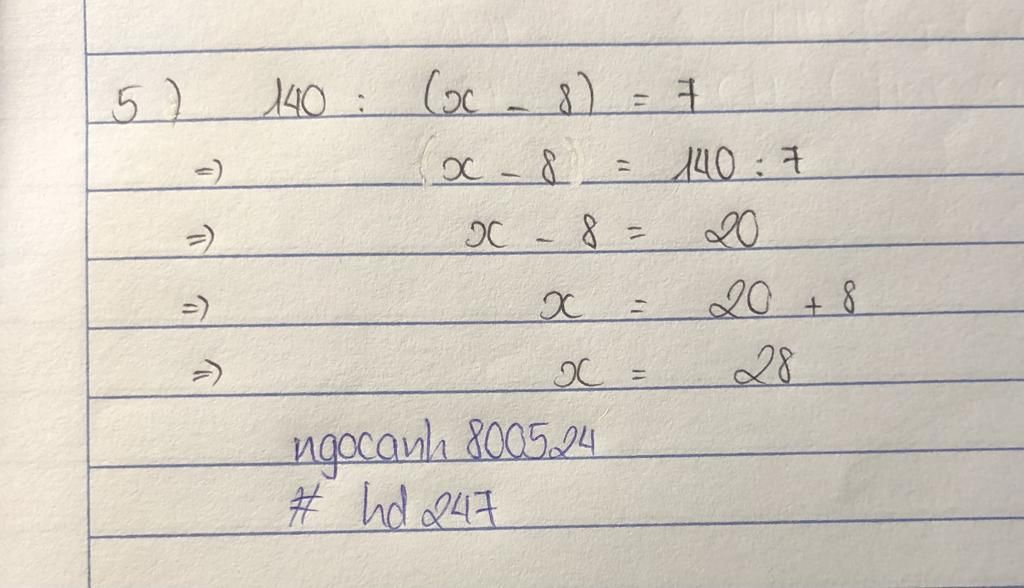 5) 140 : (x - 8) = 7
=> (x - 8) = 140 : 7
=> x - 8 = 20
=> x = 20 + 8
=> x = 28
ngocanh 800524
# hd 247